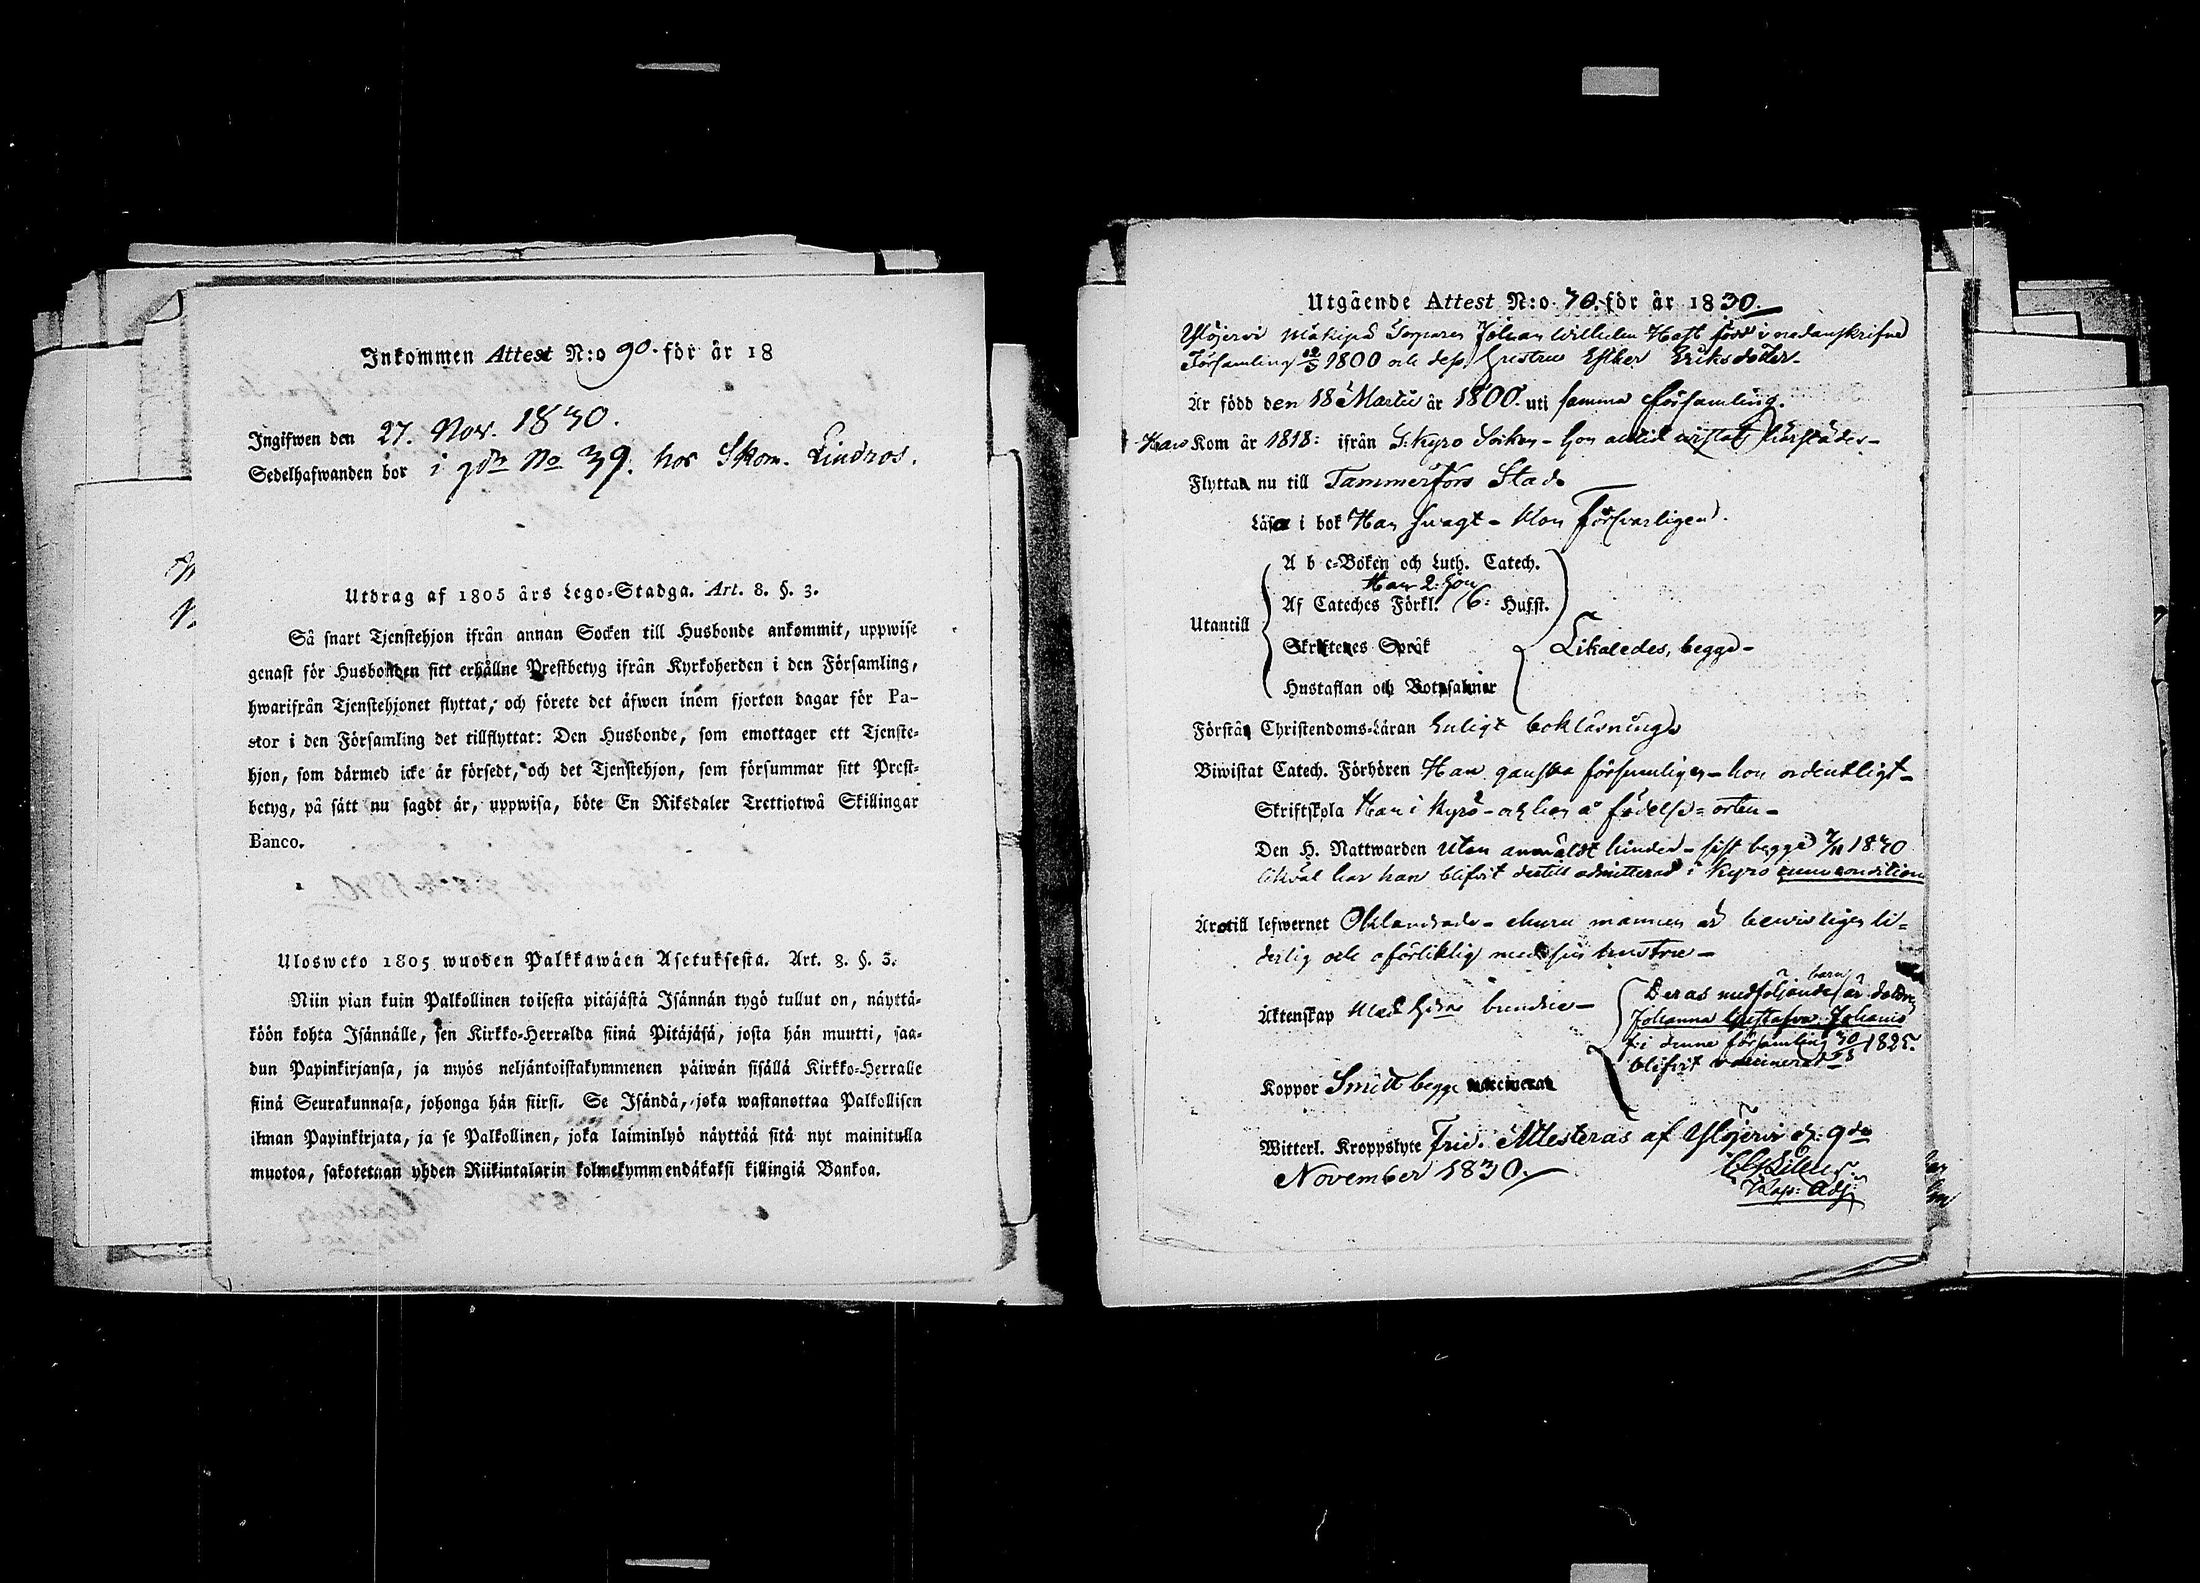 Inkommen Attest N:o 90. för år 18
Ingifwen den 27. Nov. 1830.
Sedelhafwanden bor i gdn No 39. hos Skom. Lindros.
Utdrag af 1805 års Lego-Stadga. Art. 8. §. 3.
Så snart Tjenstehjon ifrån annan Socken till Husbonde ankommit, uppwise
genast för Husbonden sitt erhållne Prestbetyg ifrån Kyrkoherden i den Församling,
hwarifrån Tjenstehjonet flyttat, och förete det äfwen inom fjorton dagar för Pa-
stor i den Församling det tillflyttat: Den Husbonde, som emottager ett Tjenste-
hjon, som därmed icke är försedt, och det Tjenstehjon, som försummar sitt Prest-
betyg, på sätt nu sagdt är, uppwisa, böte En Riksdaler Trettiotwå Skillingar
Banco.
Ulosweto 1805 wuoden Palkkawäen Asetuksesta. Art. 8. §. 3.
Niin pian kuin Palkollinen toisesta pitäjästä Isännän tygö tullut on, näyttä-
köön kohta Isännälle, sen Kirkko-Herralda siinä Pitäjäsä, josta hän muutti, saa-
dun Papinkirjansa, ja myös neljäntoistakymmenen päiwän sisällä Kirkko-Herralle
siinä Seurakunnasa, johonga hän siirsi. Se Isändä, joka wastanottaa Palkollisen
ilman Papinkirjata, ja se Palkollinen, joka laiminlyö näyttää sitä nyt mainitulla
muotoa, sakotetaan yhden Riikintalarin kolmekymmendäkaksi killingiä Bankoa.
Utgående Attest N:o 70. för år 1830.
Ylöjervi Mäkipä Torparen Johan Wilhelm Hast född i nedanskrifne
Församling 1800 och dess hustru Esther Eriksdotter
Är född den 18 Martii år 1800. uti samma församling.
Han Kom år 1818: ifrån S. Kyro Soken - hon alltid wistats härstädes -
Flyttar nu till Tammerfors Stad
Läser i bok Han swagt - Hon Försvarligen.
A b c-Boken och Luth. Catech.
Han 2: hon
Af Cateches Förkl. 6: Hufst.
Utantill
Skriftenes Språk Likaledes, begge -
Hustaflan och Botpsalmer
Förstår Christendoms-Läran Enligt bokläsning
Biwistat Catech. Förhören Han ganska försumligen - hon ordentligt -
Skriftskola Han i Kyro - och hon å födelse-orten -
Den H. Nattwarden Utan anmäldt hinder - sist begge 7/11 1830
likväl har han blifvit dertill admitterad i Kyro cum conditione
Äro till lefwernet Oklandrade - ehuru mannen är bewisligen li-
derlig och oförliklig med sin hustru -
Äktenskap Med hvarandra bundne -
barn
Deras medföljande är dottren
Johanna Gustafva Johansd.
f: i denne församling 1825.
blifvit vaccinerad
Koppor Smitt begge
Witterl. Kroppslyte Frie. Attesteras af Ylöjervi d: 9de
November 1830.
Kap: Adj: